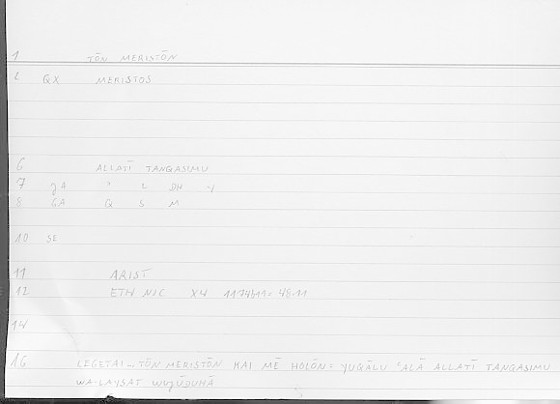 1 TŌN MERISTŌN
2 QX MERISTOS
6 ALLATĪ TANQASIMU
7 ʾ L DH Y
8 GA Q S M
10 SE
11 ARIST
12 ETH NIC X4 1174b11= 48.11
14
16 LEGETAI... TŌN MERISTŌN KAI MĒ HOLŌN= YUQĀLU ʿALĀ ALLATĪ TANQASIMU
WA-LAYSAT WUJŪDUHĀ